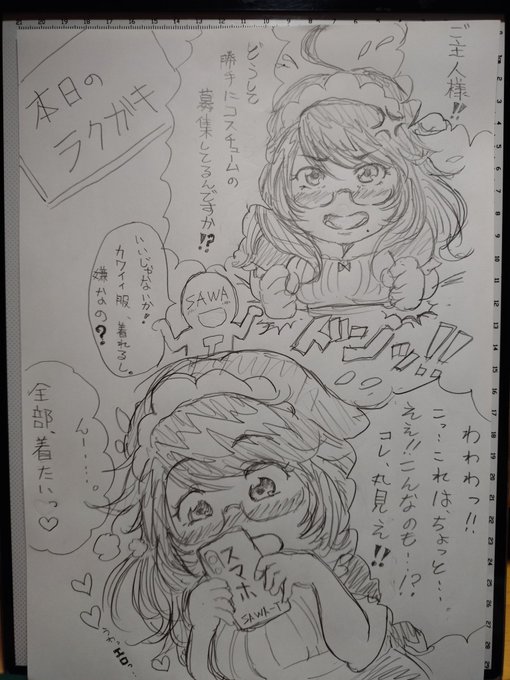 本日の
ラクガキ
ご主人様!!
どうして
勝手にコスチュームの
募集してるんですか!?
いいじゃないか!
カワイィ服、着れるし。
嫌なの?
SAWA
ドンッ!!
わわわっ!!
こっ…これは、ちょっと…。
ええ!!こんなのも…!?
コレ、丸見え!!
んー……。
全部、着たいっ♡
スマホ
SAWA-T